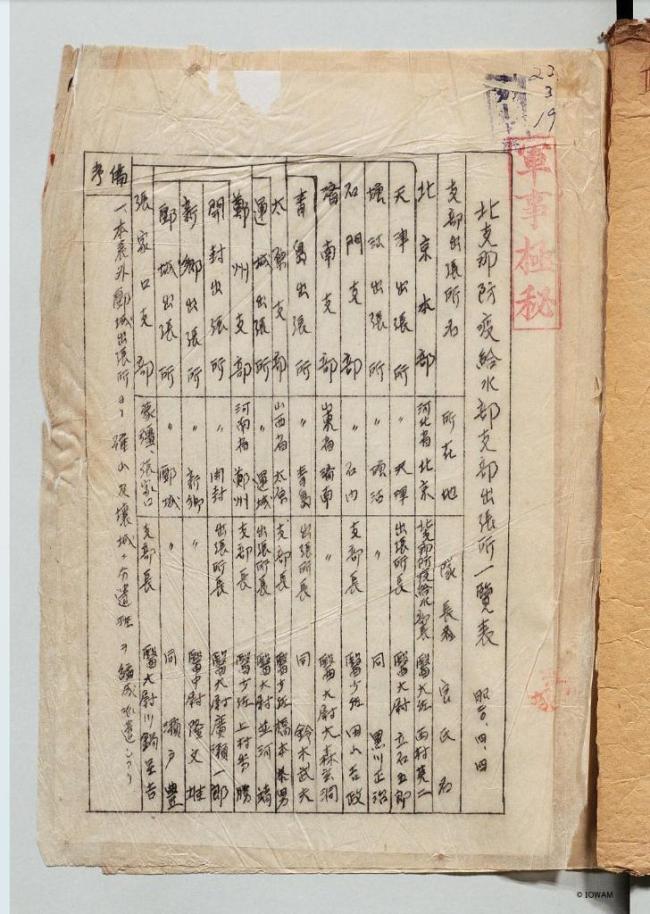 23
3
19
軍事極秘
北支那防疫給水部支部出張所一覧表 昭二〇、四、四
支部出張所名 所在地 隊長 官氏名
北京本部 河北省北京 北支那防疫給水部長 醫大佐 西村英二
天津出張所 〃 天津 出張所長 醫大尉 立石五郎
塘沽出張所 〃 塘沽 〃 同 黒川正治
石門支部 〃 石門 支部長 醫少佐 田山吉政
濟南支部 山東省濟南 〃 醫大尉 大森玄洞
青島出張所 〃 青島 出張所長 同 鈴木武夫
太原支部 山西省太原 支部長 醫少佐 橋本
運城出張所 〃 運城 出張所長 醫大尉 並河靖
鄭州支部 河南省鄭州 支部長 醫少佐 上村 勝
開封出張所 〃 開封 出張所長 醫大尉 廣瀬一郎
新鄉出張所 〃 新鄉 〃 醫中尉 隆文雄
郾城出張所 〃 郾城 〃 同 瀬戸豊
張家口支部 蒙疆、張家口 支部長 醫大尉 川
備考 一、本表外郾城出張所ヨリ確山及襄城ニ分遣班ヲ編成派遣シアリ
© IOWAM